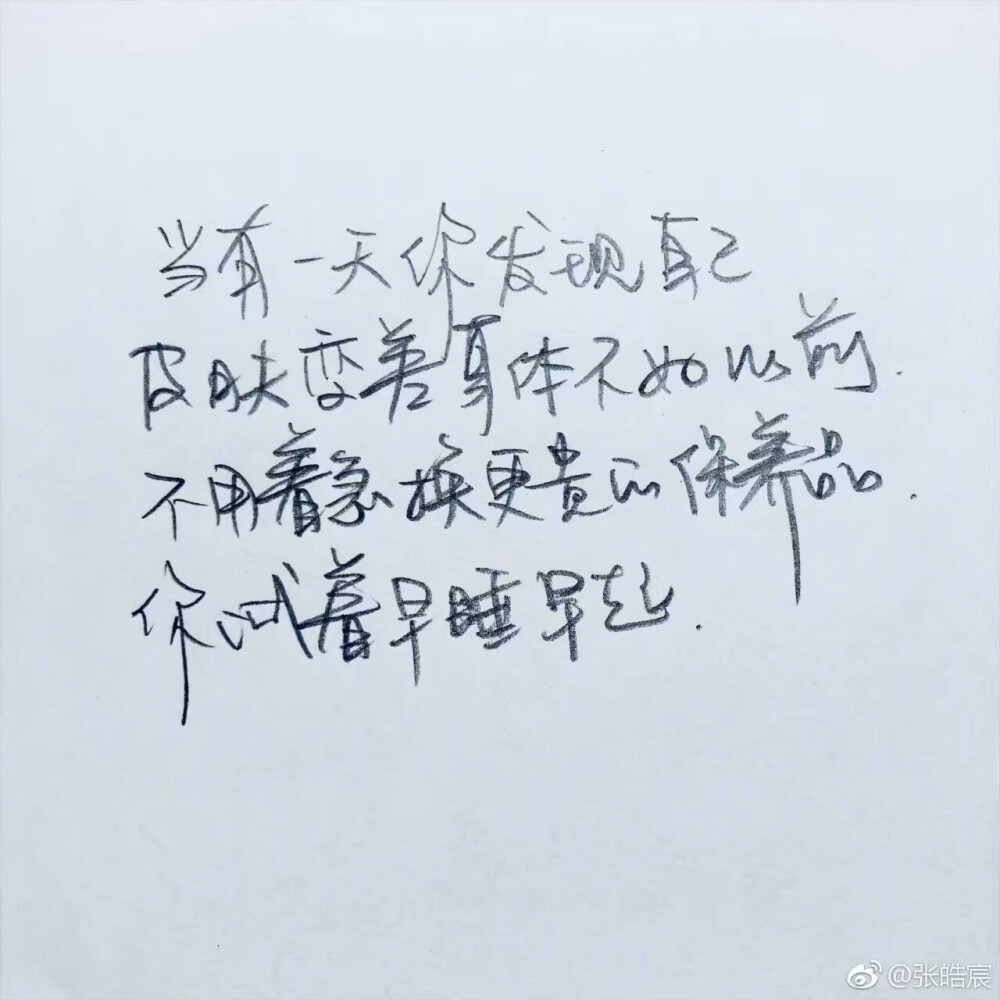 当有一天你发现自己
皮肤变差身体不如以前.
不用着急换更贵的保养品.
你试着早睡早起.
@张皓宸